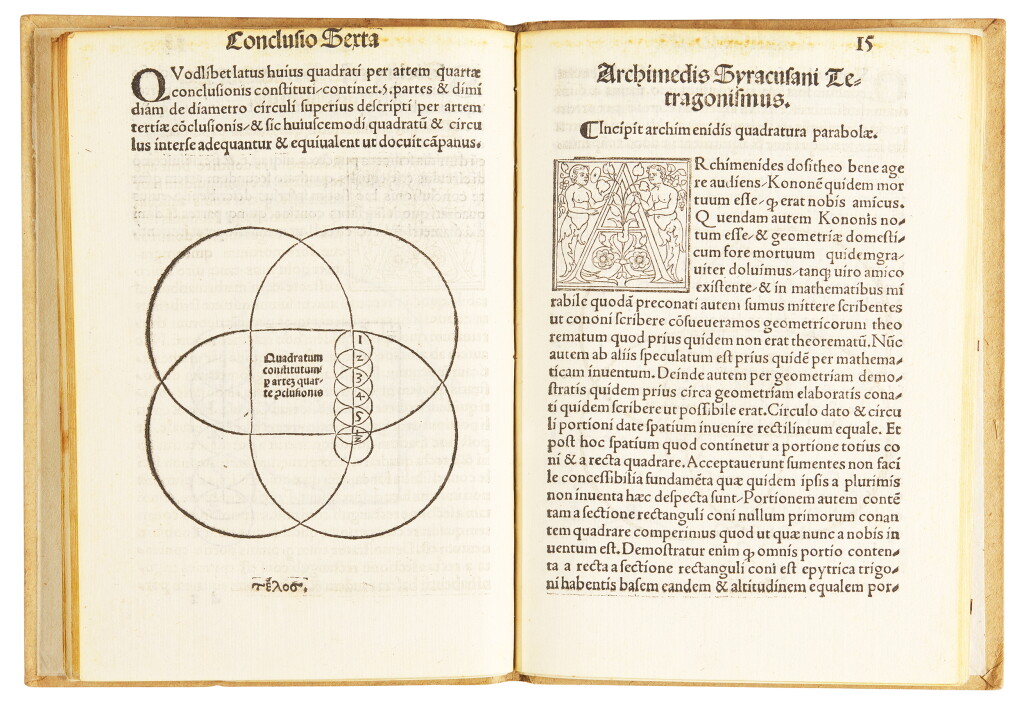 Concluſio Sexta
QVodlibet latus huius quadrati per artem quartæ
concluſionis conſtituti/continet.5.partes & dimi
diam de diametro circuli ſuperius deſcripti per artem
tertiæ cōcluſionis/& ſic huiuſcemodi quadratū & circu
lus interſe adequantur & equiualent ut docuit cāpanus.
1
2
3
4
5
1/2
Quadratum
conſtitutum
p artez quar-
te ↄcluſionis
τέλος.
15
Archimedis Syracuſani Te-
tragoniſmus.
¶Incipit archimenidis quadratura parabolæ.
ARchimenides doſitheo bene age
re audiens/Kononē quidem mor
tuum eſſe/ꝙ erat nobis amicus.
Quendam autem Kononis no/
tum eſſe/& geometriæ domeſti/
cum fore mortuum quidemgra/
uiter doluimus/tanꝗ uiro amico
exiſtente/& in mathematibus mi
rabile quodā preconati autem ſumus mittere ſcribentes
ut cononi ſcribere cōſueueramos geometricorum theo
rematum quod prius quidem non erat theorematū. Nūc
autem ab aliis ſpeculatum eſt prius quidē per mathema/
ticam inuentum. Deinde autem per geometriam demo/
ſtratis quidem prius circa geometriam elaboratis cona/
ti quidem ſcribere ut poſſibile erat. Circulo dato & circu
li portioni date ſpatium inuenire rectilineum equale. Et
poſt hoc ſpatium quod continetur a portione totius co
ni & a recta quadrare. Acceptauerunt ſumentes non faci
le conceſſibilia fundamēta quæ quidem ipſis a plurimis
non inuenta hæc deſpecta ſunt/Portionem autem contē
tam a ſectione rectanguli coni nullum primorum conan
tem quadrare comperimus quod ut quæ nunc a nobis in
uentum eſt. Demoſtratur enim ꝙ omnis portio conten/
ta a recta a ſectione rectanguli coni eſt epytrica trigo/
ni habentis baſem eandem & altitudinem equalem por/